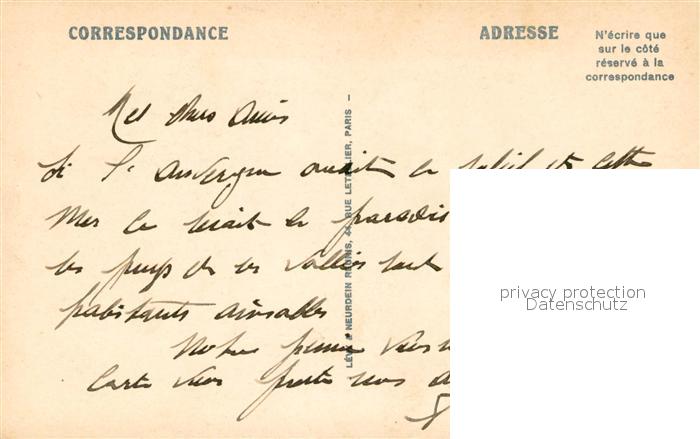 CORRESPONDANCE
ADRESSE
N'écrire que
sur le côté
réservé à la
correspondance
Mes chers Amis
Si l'Auvergne avait le soleil et cette
Mer ce serait le paradis
les puys et les vallées sont
habitants aimables
Notre
Carte vous porte nos
LÉVY & NEURDEIN RÉUNIS, 44, RUE LETELLIER, PARIS –
privacy protection
Datenschutz